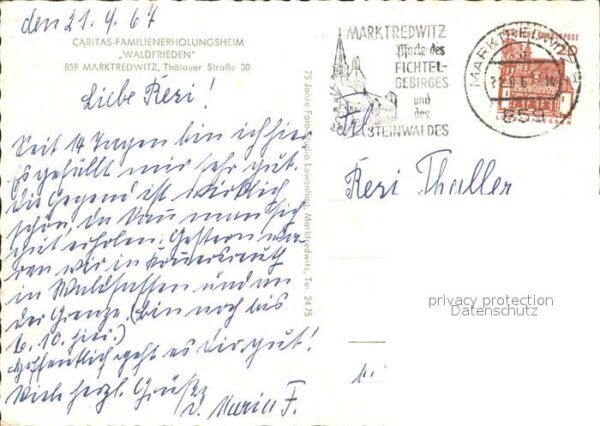 den 21. 9. 67
CARITAS-FAMILIENERHOLUNGSHEIM
„WALDFRIEDEN"
859 MARKTREDWITZ, Thölauer Straße 30
Liebe Resi!
Seit 14 Tagen bin ich hier
Es gefällt mir sehr gut.
Die Gegend ist wirklich
schön, da kann man sich
gut erholen. Gestern wa-
ren wir in
in Waldsassen und an
der Grenze. (bin noch bis
6. 10. hier.)
Hoffentlich geht es Dir gut!
Viele herzl. Grüße
v. Maria F.
75 Jahre Foto Lowenhag, Marktredwitz, Tel. 2475
MARKTREDWITZ
Pforte des
FICHTEL-
GEBIRGES
und
des
STEINWALDES
MARKTREDWITZ
859
DEUTSCHE BUNDESPOST
20
Frl.
Resi Thaller
privacy protection
Datenschutz